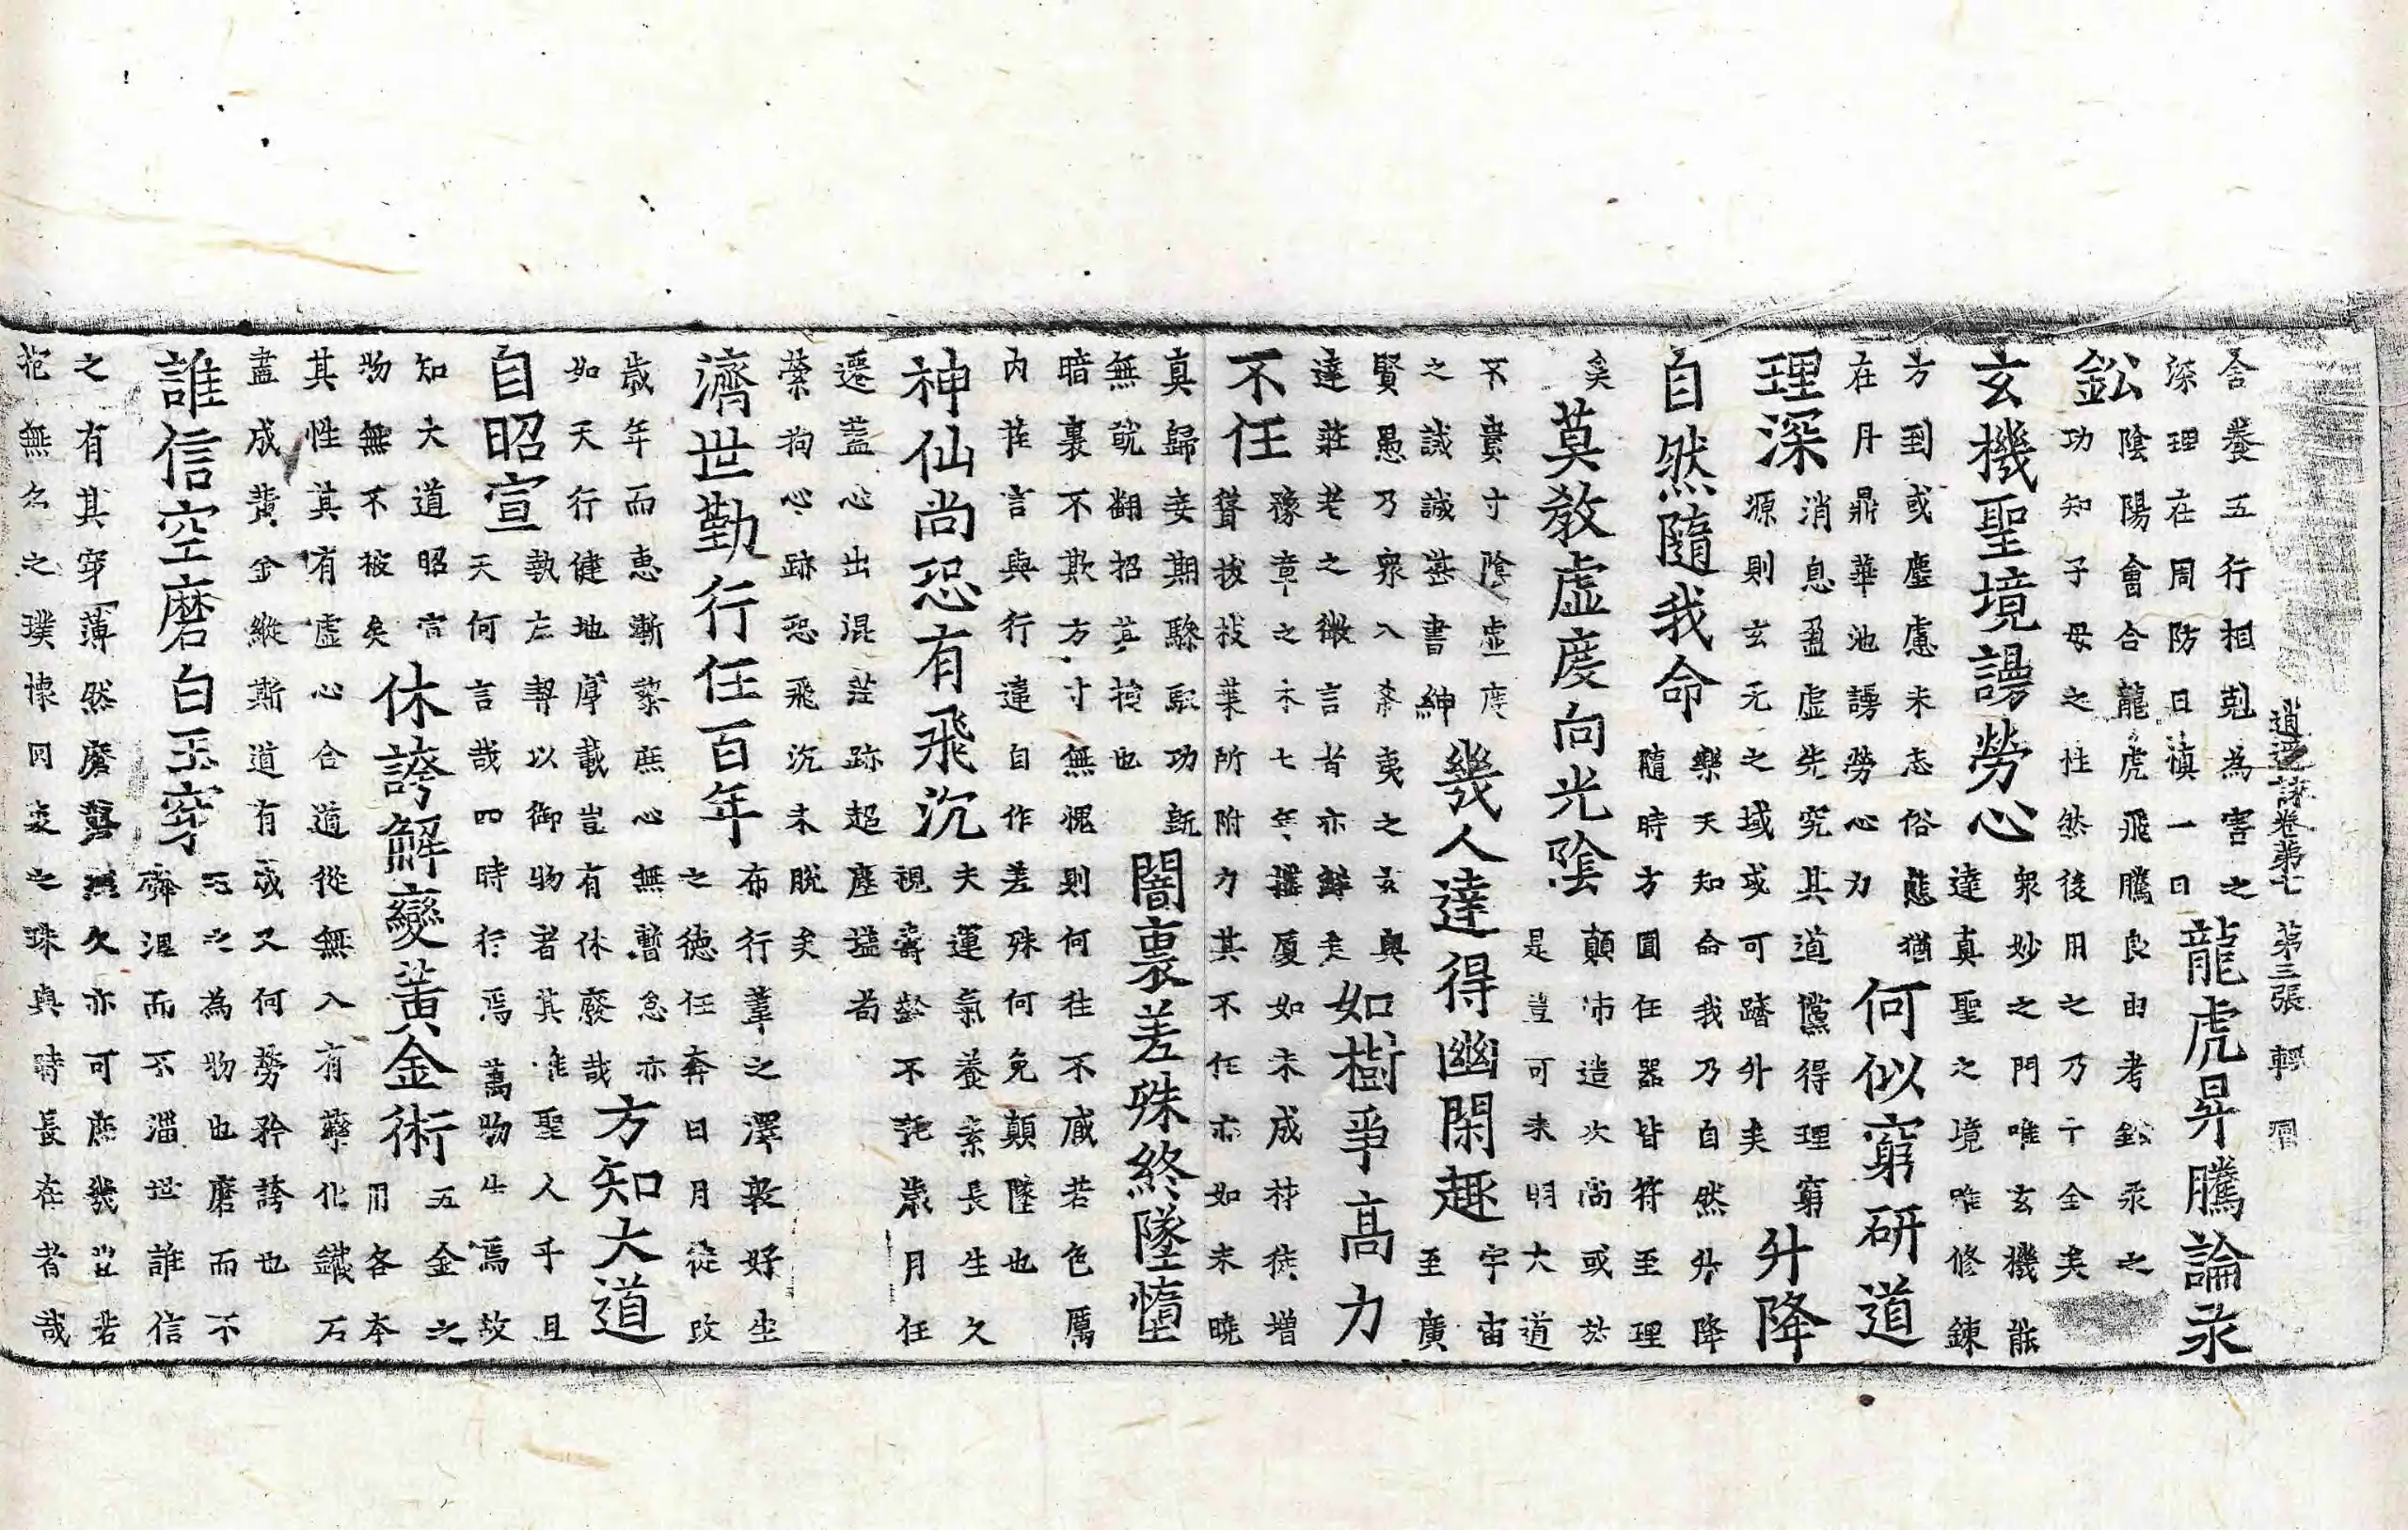 逍遙詠卷第七 第三張 輕
含養五行相剋為害之
深理在周防日慎一日
龍虎昇騰論汞
鈆
陰陽會合龍虎飛騰良由考鈆汞之
功知子母之性然後用之乃亍全矣
玄機聖境謾勞心
衆妙之門唯玄機能
達真聖之境唯修鍊
方到或塵慮未忘俗態猶
在丹鼎華池謾勞心力
何似窮研道
理深
消息盈虛先究其道儻得理窮
源則玄元之域或可躋升矣
升降
自然隨我命
樂天知命我乃自然升降
隨時方圓任器皆符至理
矣
莫教虛度向光陰
顛沛造次尚或於
是豈可未明大道
不貴寸陰虛度
之誡誠甚書紳
幾人達得幽閑趣
宇宙
至廣
賢愚乃衆入希夷之玄奧
達莊老之微言者亦鮮矣
如樹爭高力
不任
豫章之木七年擢厦如未成材徒增
聳拔枝葉所附力其不任亦如未曉
真歸妄期驂馭功既
無就翻招其損也
闇裏差殊終墜墮
暗裏不欺方寸無愧則何往不臧若色厲
內荏言與行違自作差殊何免顛墜也
神仙尚恐有飛沉
夫運氣養素長生久
視齊齡不託歲月任
遷蓋心出混茫跡超塵壒者
縈拘心跡恐飛沉未脫矣
濟世勤行任百年
布行羣之澤敦好生
之德任奔日月從改
歲年而惠漸黎庶心無暫怠亦
如天行健地厚載豈有休廢哉
方知大道
自昭宣
執左契以御物者其唯聖人乎且
天何言哉四時行焉萬物生焉故
知大道昭宣
物無不被矣
休誇解變黃金術
五金之
用各本
其性其有虛心合道從無入有藥化鐵石
盡成黃金縱斯道有成又何勞矜誇也
誰信空磨白玉穿
玉之為物也磨而不
磷涅而不淄世誰信
之有其穿薄然磨礱久亦可庶幾豈若
抱無名之璞懷罔象之珠與時長在者哉